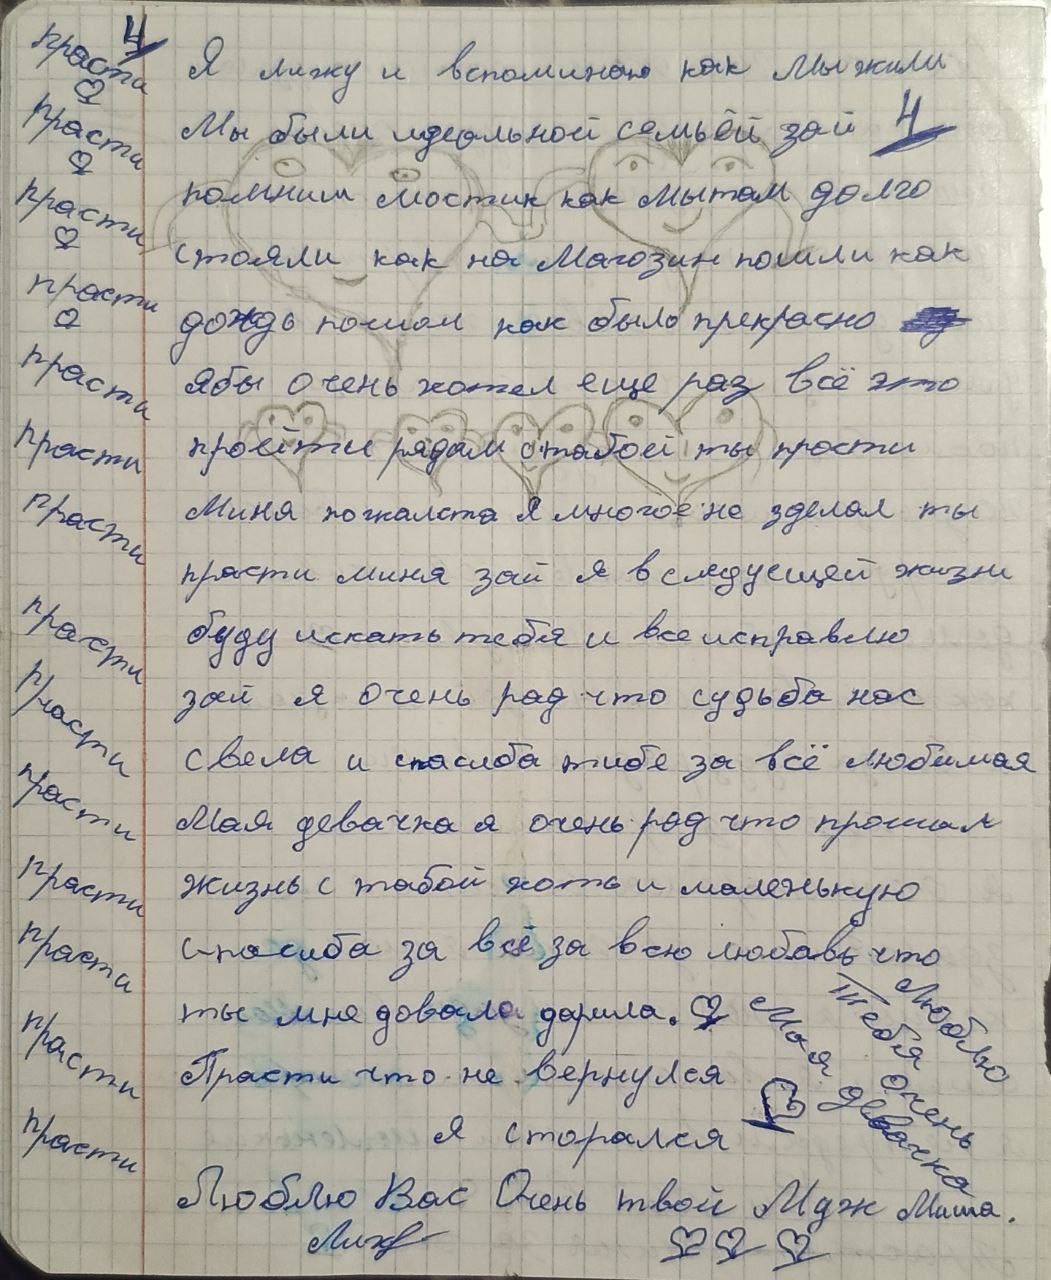 4
Я лижу и вспоминаю как Мы жили
Мы были идеальной семьёй зай 4
помниш мостик как Мы там долго
стояли как на Магозин пошли как
дождь пошол как было прекрасно
я бы очень хотел еще раз всё это
пройти рядам с табой ты прости
Миня пожалста Я многое не зделал ты
прасти миня зай я в следуещей жизни
буду искать тебя и все исправлю
зай я очень рад что судьба нас
свела и спасиба тибе за всё любимая
Мая девачка я очень рад что прошал
жизнь с табой хоть и маленькую
спасиба за всё за всю любавь что
ты мне довала дарила.
Прасти что не вернулся
Я сторался
Люблю Вас Очень твой Мдж Миша.
прасти
прасти
прасти
прасти
прасти
прасти
прасти
прасти
прасти
прасти
прасти
прасти
прасти
прасти
Люблю
Тебя очень
Моя девачка